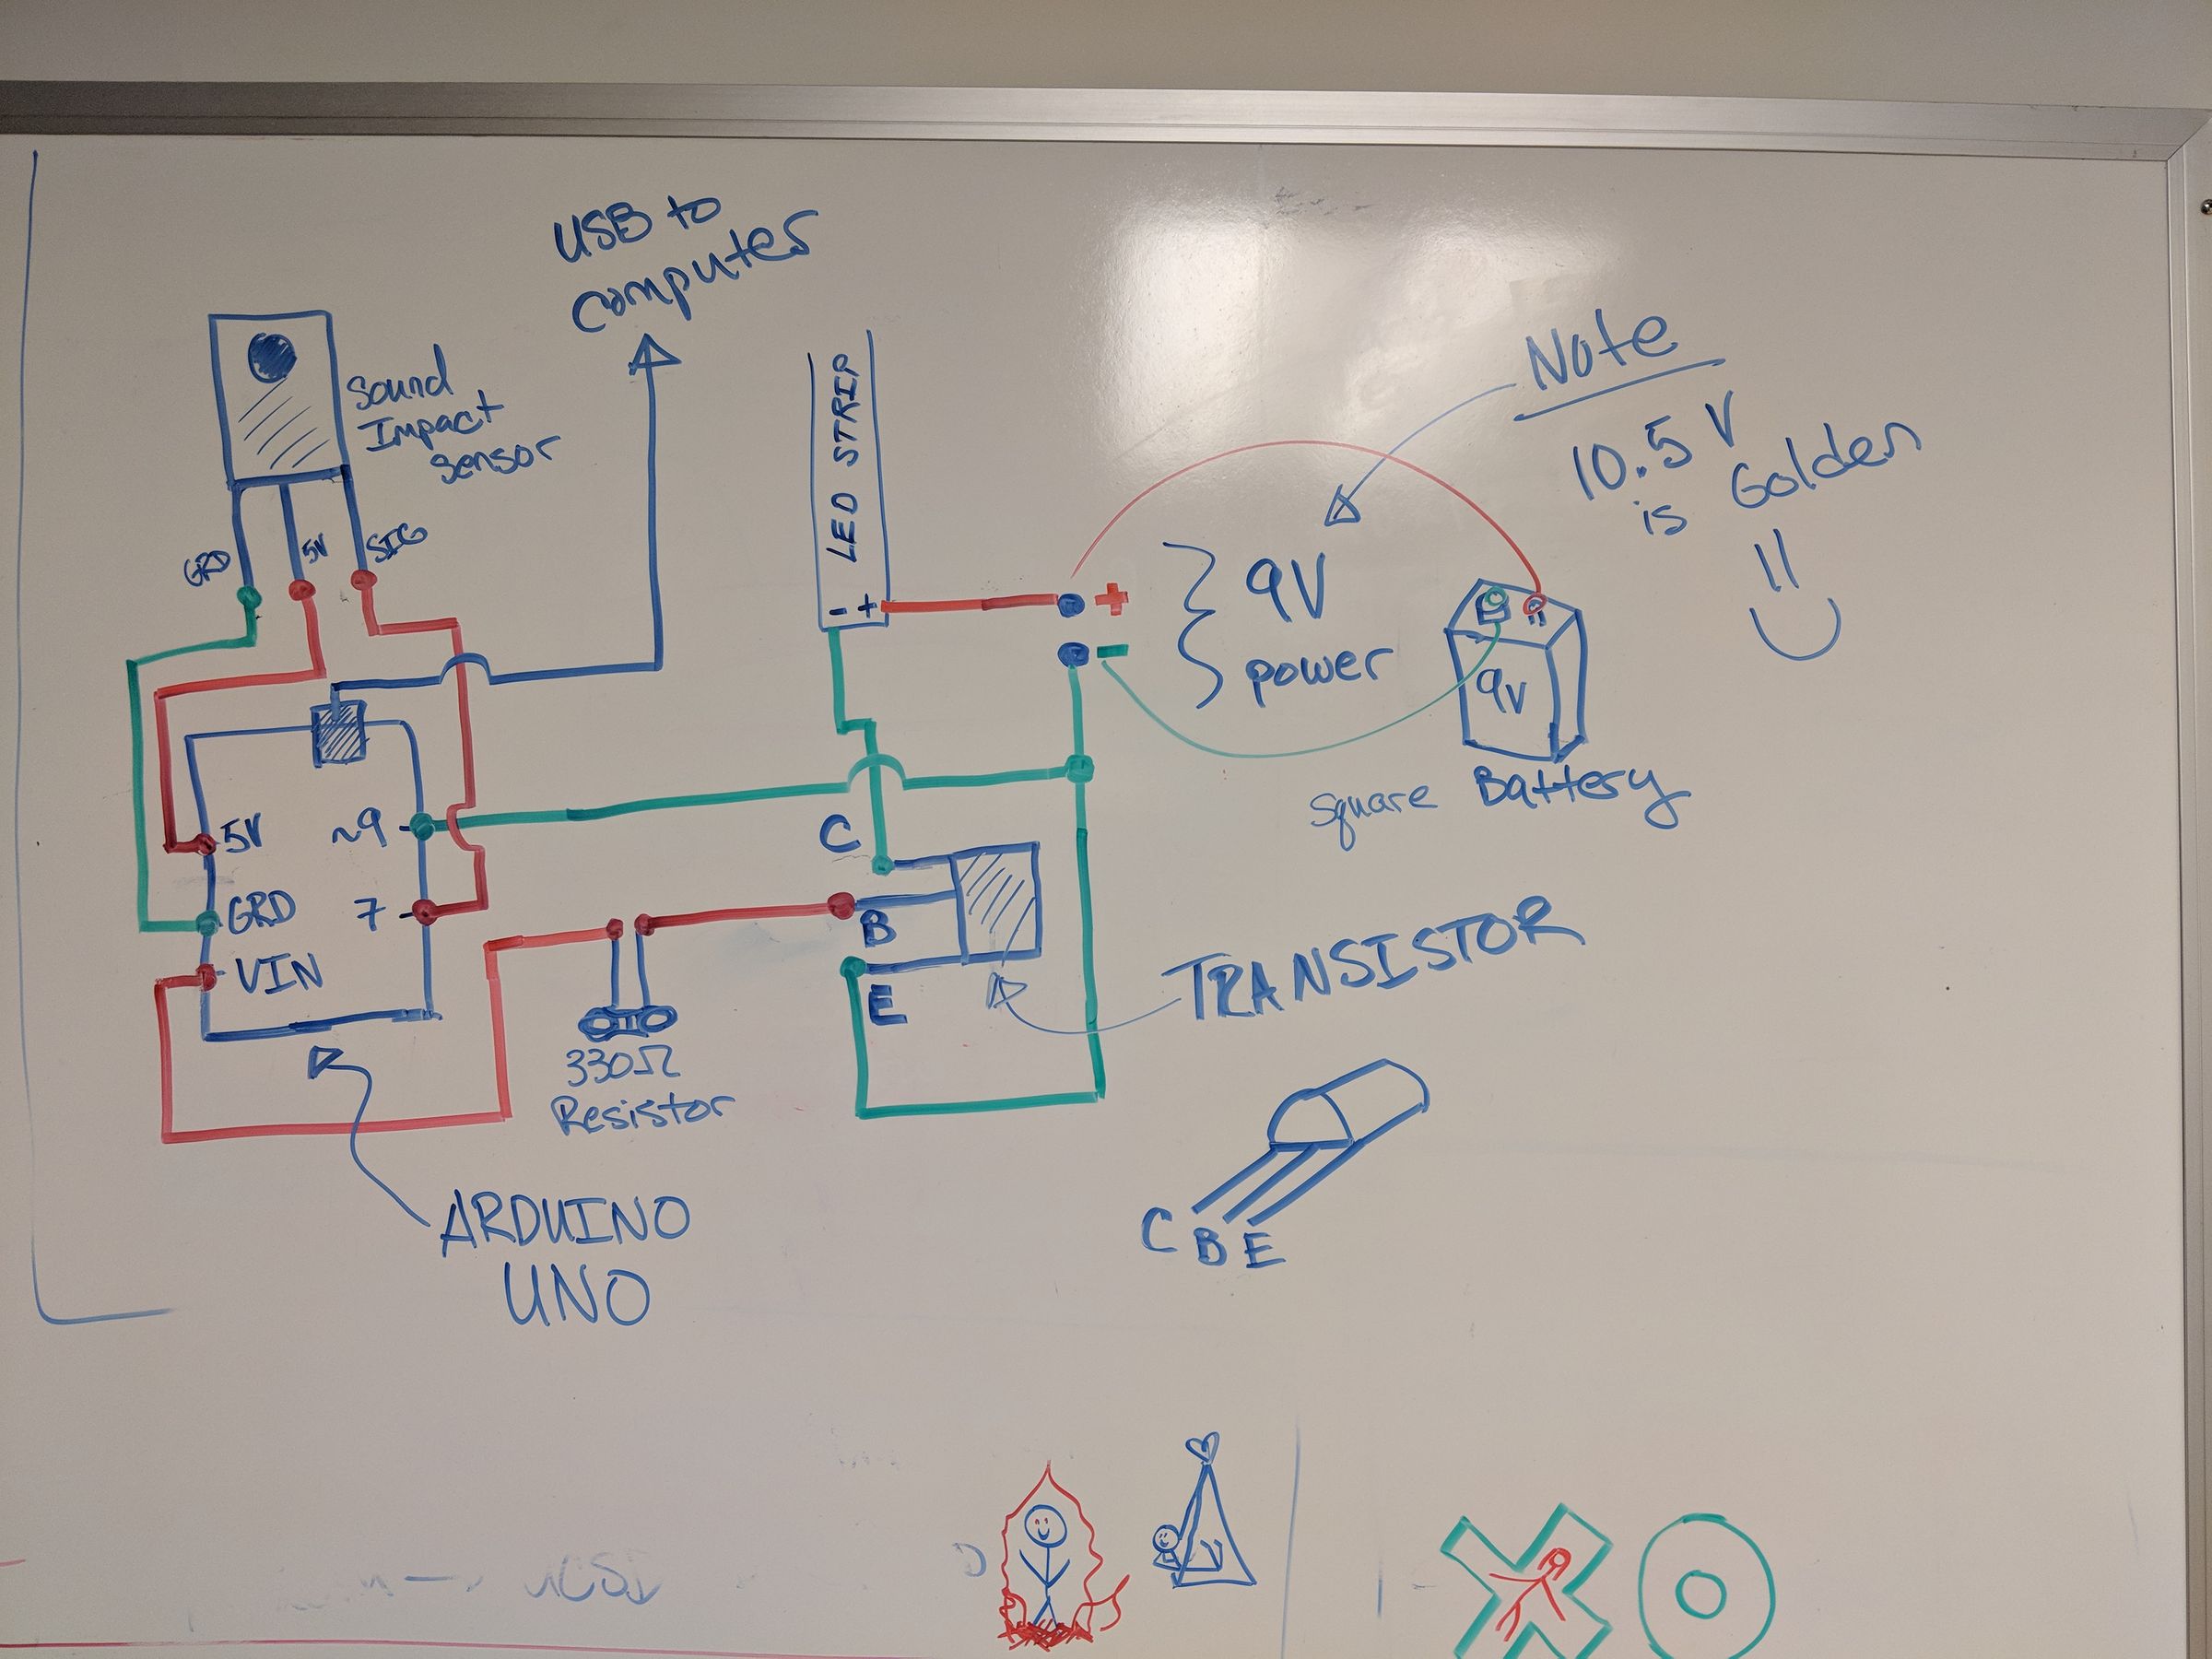 USB to
computer
Sound
Impact
Sensor
GRD
5V
SIG
LED STRIP
- +
+
-
9V
power
Note
10.5 V
is Golden
9V
Square Battery
5V
GRD
VIN
~9
7
C
B
E
TRANSISTOR
330Ω
Resistor
ARDUINO
UNO
C B E